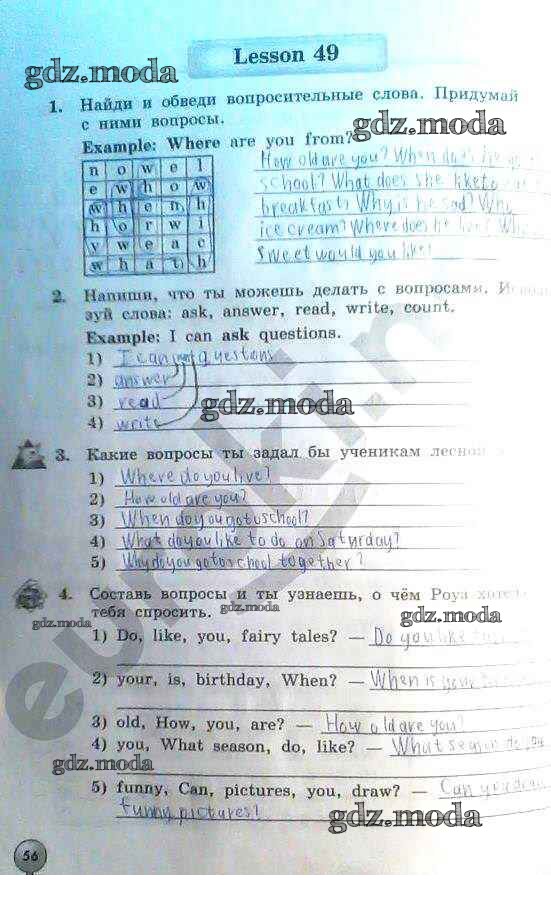 Lesson 49
gdz.moda
1. Найди и обведи вопросительные слова. Придумай
с ними вопросы.
gdz.moda
Example: Where are you from?
n o w e l
e w h o w
w h e n h
h o r w i
y w e a c
w h a t h
How old are you? When does he
school? What does she like to
breakfast? Why is he sad? Why
ice cream? Where does he live?
sweet would you like?
2. Напиши, что ты можешь делать с вопросами.
зуй слова: ask, answer, read, write, count.
Example: I can ask questions.
1) I can questons
2) answer
3) read
gdz.moda
4) write
3. Какие вопросы ты задал бы ученикам лесной
1) Where do you live?
2) How old are you?
3) When do you go to school?
4) What do you like to do on Saturday?
5) Why do you go to school together?
4. Составь вопросы и ты узнаешь, о чём Роуз
тебя спросить.
gdz.moda
gdz.moda
gdz.moda
1) Do, like, you, fairy tales? — Do you like
2) your, is, birthday, When? — When is your
3) old, How, you, are? — How old are you?
4) you, What season, do, like? — What season do you
gdz.moda
5) funny, Can, pictures, you, draw? — Can you draw
funny pictures?
gdz.moda
56
euroki